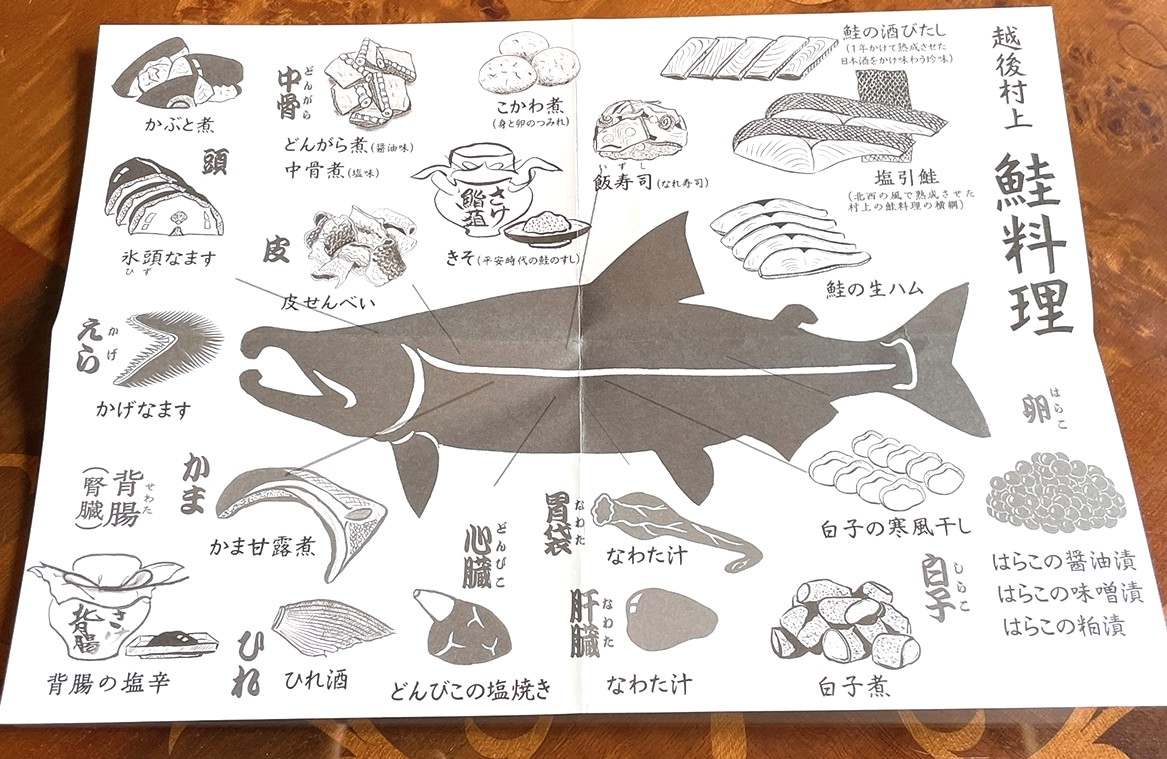 越後村上
鮭料理
鮭の酒びたし
(1年かけて熟成させた
日本酒をかけ味わう珍味)
塩引鮭
(北西の風で熟成させた
村上の鮭料理の横綱)
鮭の生ハム
こかわ煮
(身と卵のつみれ)
飯寿司(なれ寿司)
いずし
さけ
鮨
きそ(平安時代の鮭のすし)
中骨
どんがら
どんがら煮(醤油味)
中骨煮(塩味)
皮
皮せんべい
かぶと煮
頭
氷頭なます
ひず
えら
かげ
かげなます
かま
かま甘露煮
背腸
せわた
(腎臓)
さけ
背腸
背腸の塩辛
ひれ
ひれ酒
心臓
どんびこ
どんびこの塩焼き
胃袋
なわた
なわた汁
肝臓
なわた
なわた汁
白子の寒風干し
白子
しらこ
白子煮
卵
はらこ
はらこの醤油漬
はらこの味噌漬
はらこの粕漬